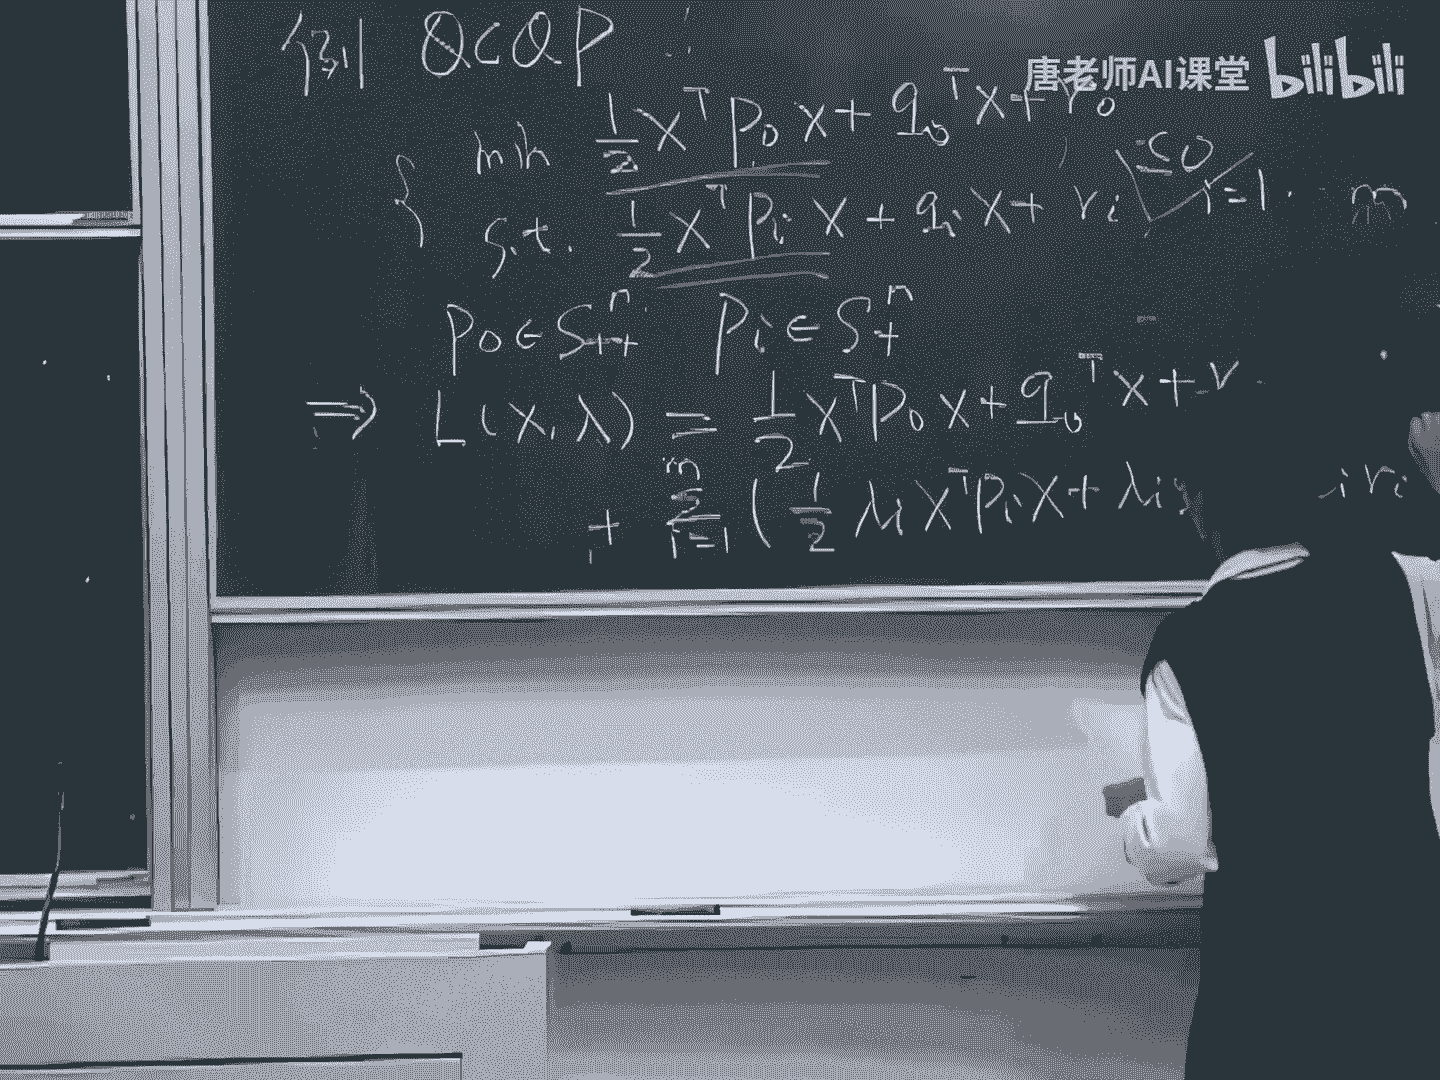 例 QCQP
唐老师AI课堂 bilibili
min 1/2 x^T P_0 x + q_0^T x + r_0
s.t. 1/2 x^T P_i x + q_i x + r_i ≤0 i=1. m
P_0 ∈ S_{++}^n P_i ∈ S_+^n
⇒ L(x, λ) = 1/2 x^T P_0 x + q_0^T x + r
+ Σ_{i=1}^m ( 1/2 λ_i x^T P_i x + λ_i i r_i